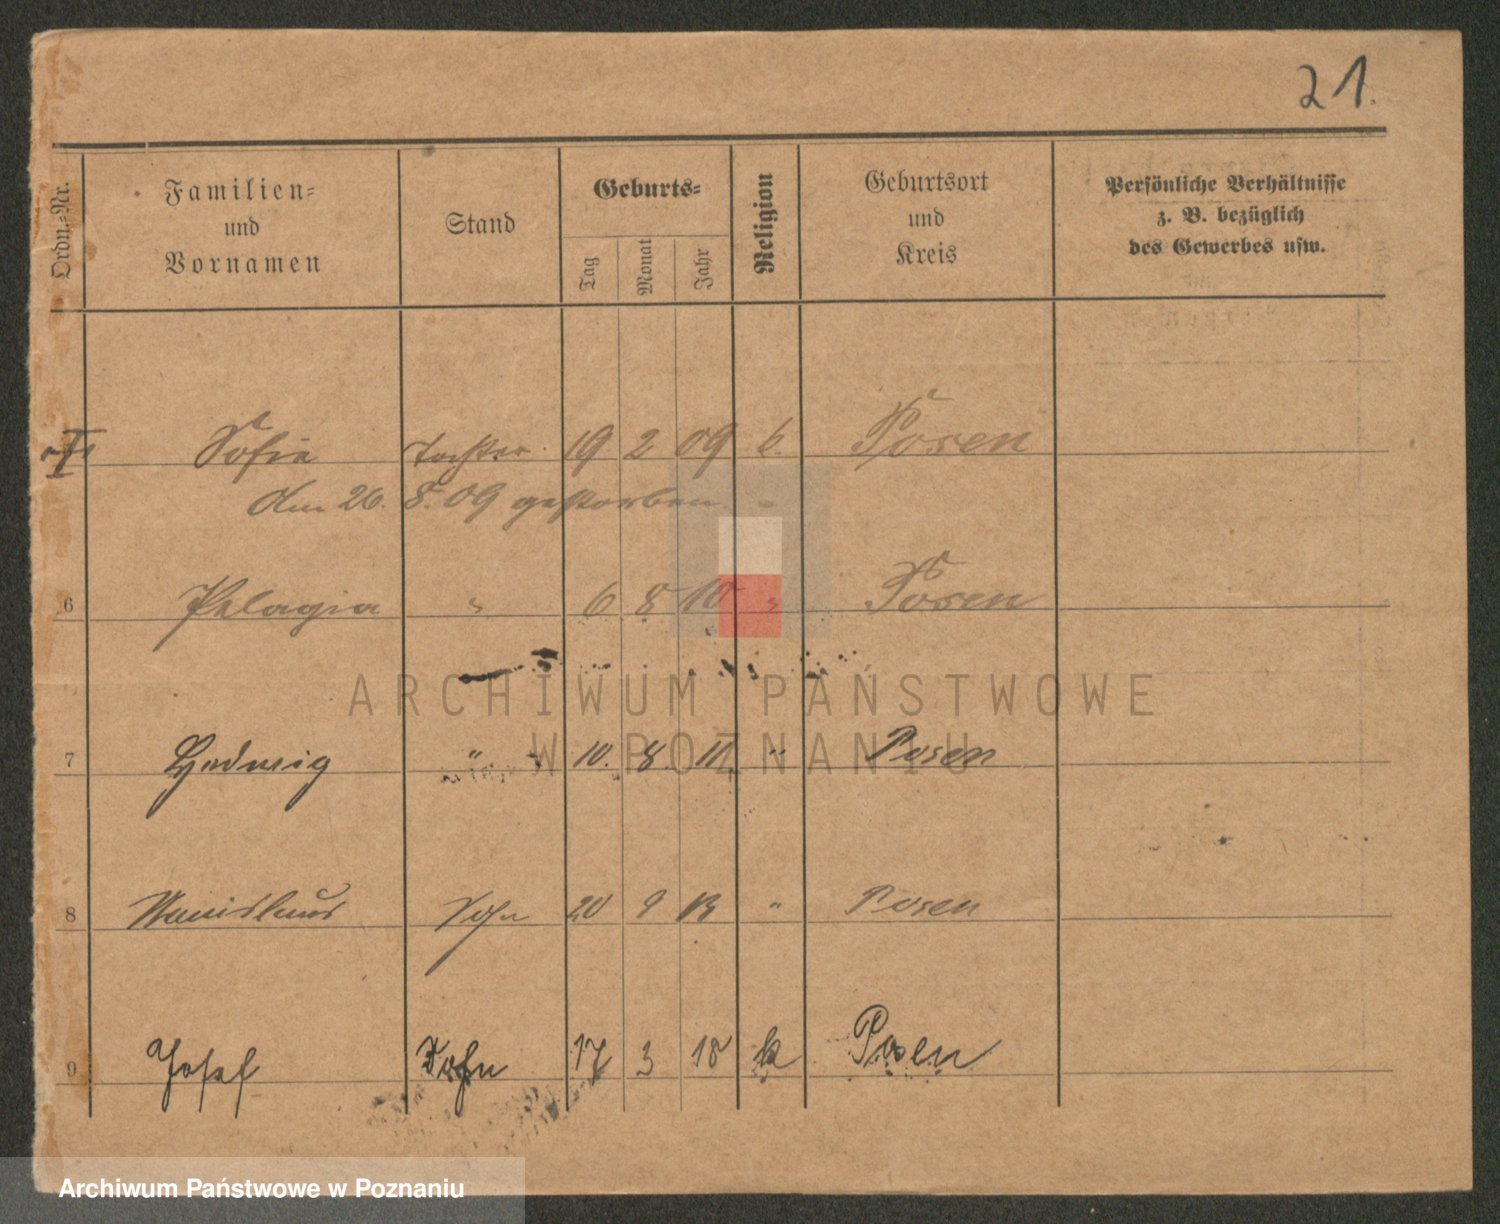 21.
Ordn.-Nr.
Familien-
und
Vornamen
Stand
Geburts-
Tag
Monat
Jahr
Religion
Geburtsort
und
Kreis
Persönliche Verhältnisse
z. B. bezüglich
des Gewerbes usw.
Sofie Tochter 19 2 09 k. Posen
Am 26. 8. 09 gestorben
6 Pelagia " 6 8 10 " Posen
ARCHIWUM PAŃSTWOWE
W POZNANIU
7 Hedwig " 10. 8. 11. " Posen
8 Stanislaus Sohn 20 9 13 " Posen
9 Josef Sohn 17 3 18 k Posen
Archiwum Państwowe w Poznaniu